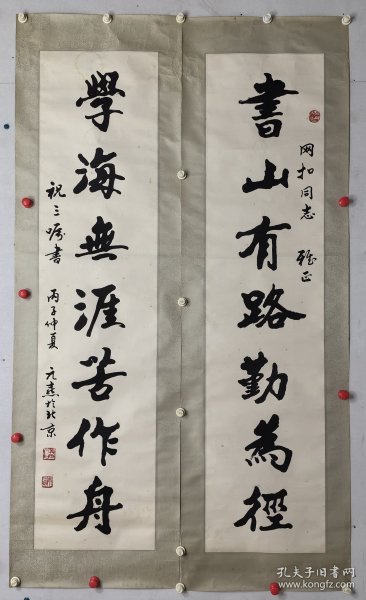 書山有路勤為徑
网扣同志 雅正
學海無涯苦作舟
祝三嘱書 丙子仲夏 元熹於北京
孔夫子旧书网
www.kongfz.com